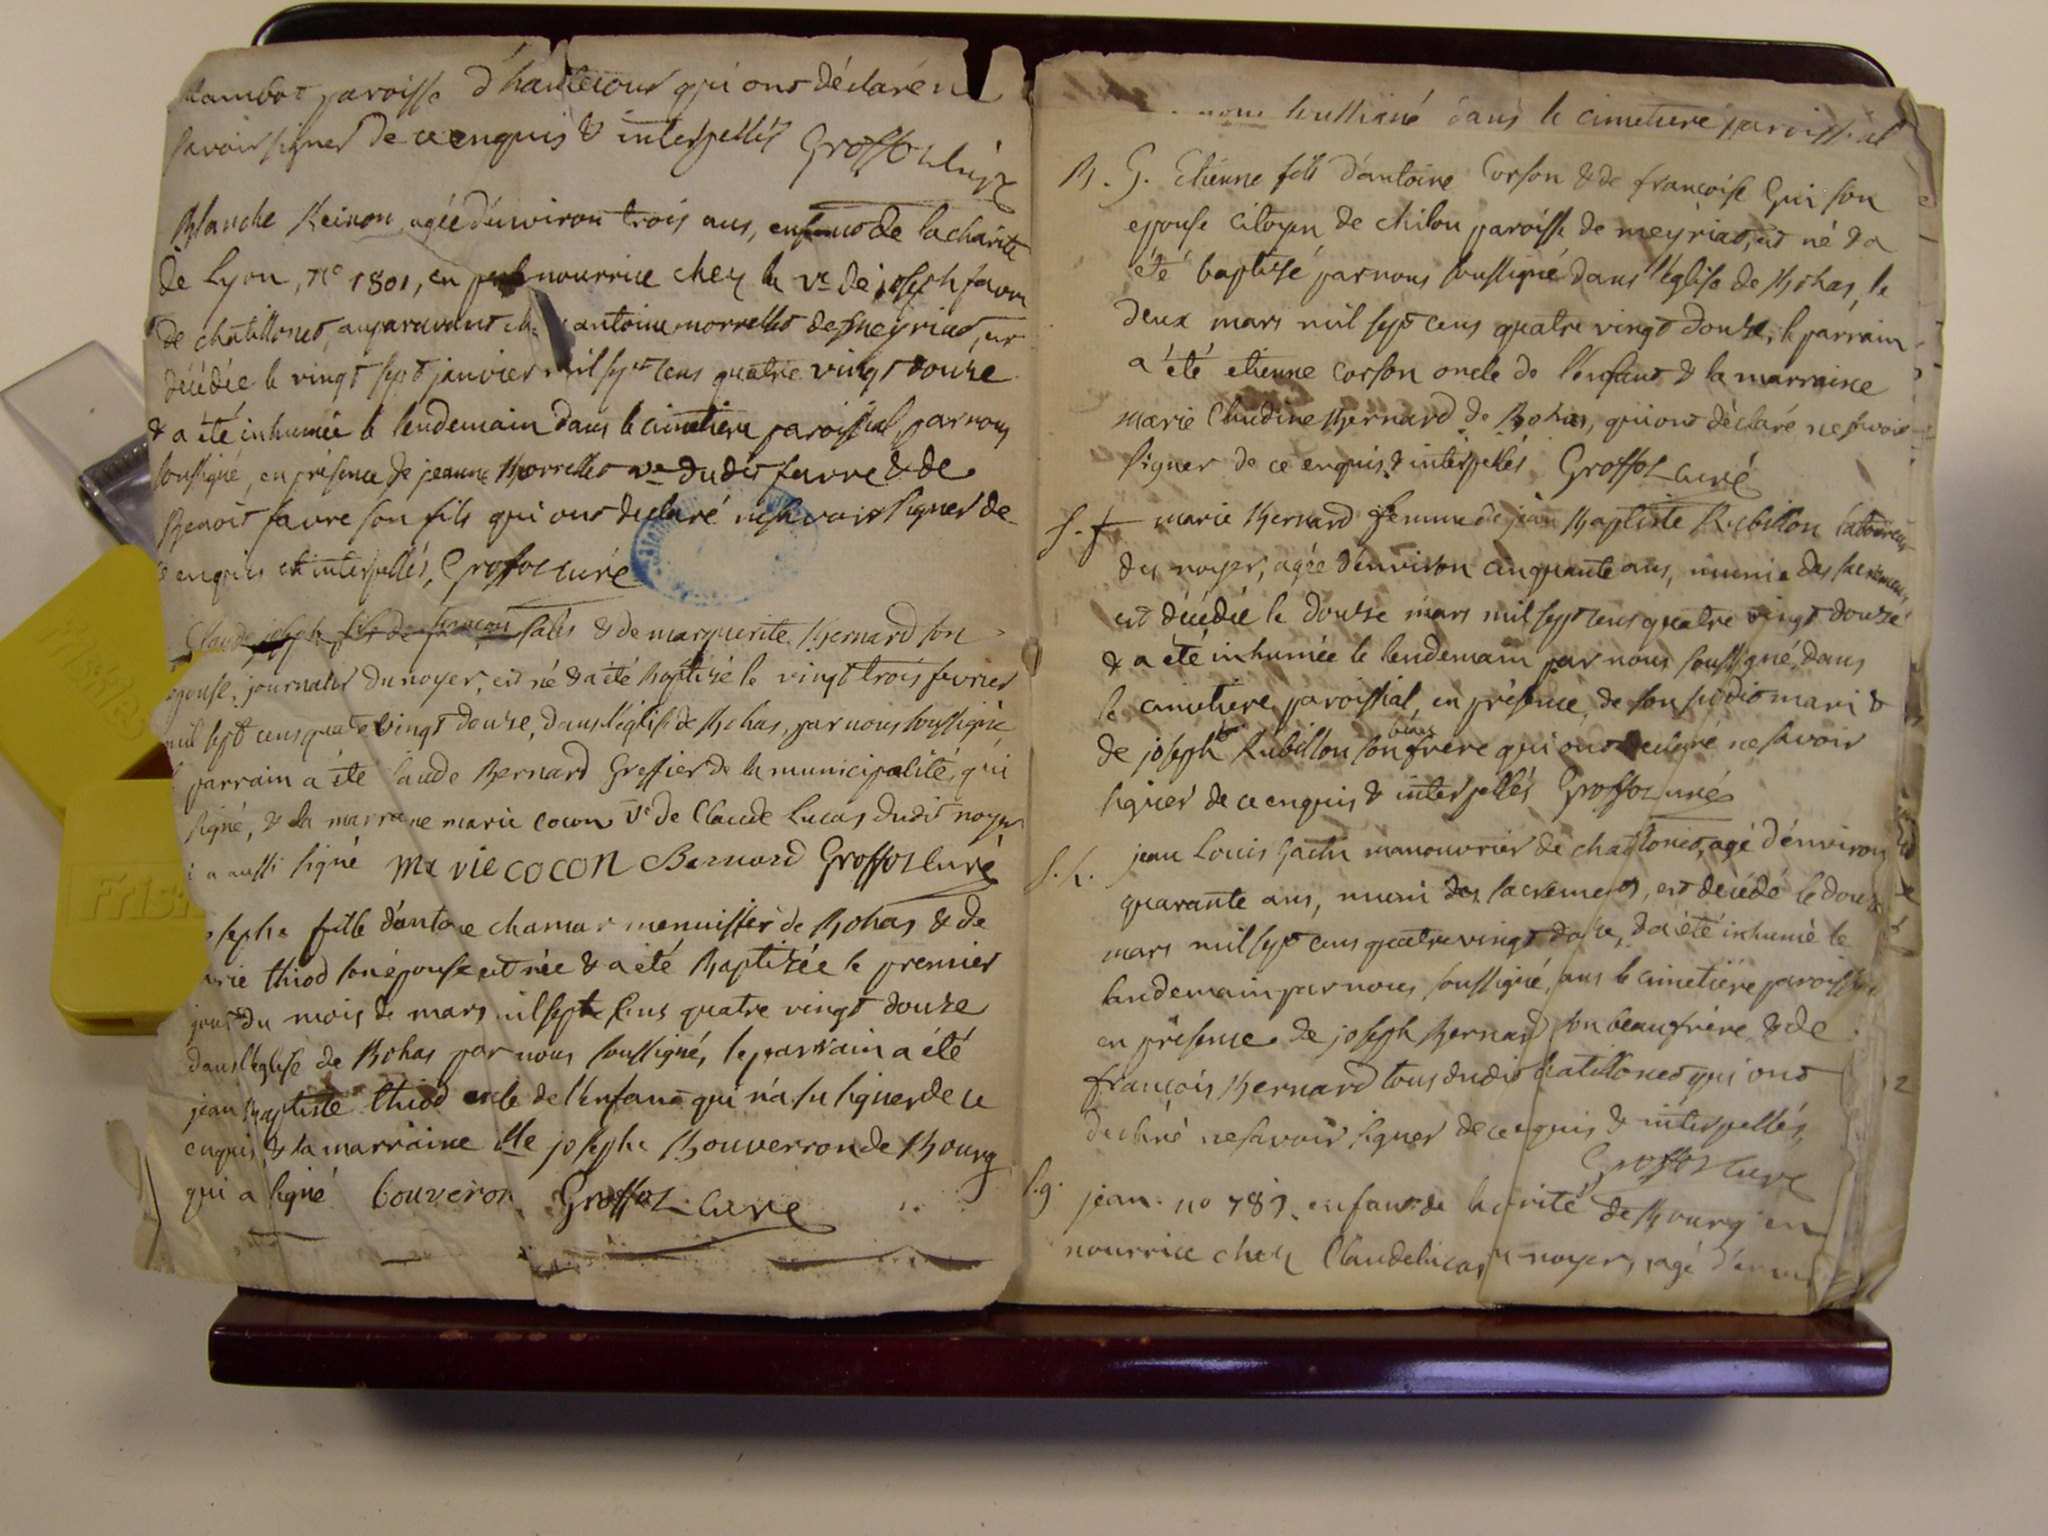 Rambos paroisse d'hautecour qui ont déclaré ne
savoir signer de ce enquis & interpellés Groffoz curé
Blanche Reinon, agée d'environ trois ans, enfant de la charité
de Lyon, n° 1801, en nourrice chez la ve de joseph favre
de chatillonet, auparavant antoine morrellet de meyriat, est
décédée le vingt sept janvier mil sept cens quatre vingt douze
& a été inhumée le lendemain dans le cimetiere paroissial, par nous
soussigné, en présence de jeanne Morrellet ve dudit favre & de
Benoit favre son fils qui ont declaré ne savoir signer de
ce enquis et interpellés, Groffoz curé
Claude joseph fils de françois salés & de marguerite Bernard son
epouse, journalier du noyer, est né & a été baptizé le vingt trois fevrier
mil sept cens quatre vingt douze, dans l'église de Bohas, par nous soussigné
le parrain a été Claude Bernard Greffier de la municipalité, qui
signé, & la marraine marie cocon ve de Claude Lucas dudit noyer
i a aussi signé Marie cocon Bernard Groffoz curé
osephe fille d'antoine chamar menuisier de Bohas & de
arie thiod son épouse est née & a été Baptizée le premier
jour du mois de mars mil sept cens quatre vingt douze
dans l'église de Bohas par nous soussigné, le parrain a été
jean Baptiste thiod oncle de l'enfant qui n'a su signer de ce
enquis, & la marraine Dlle josephe Bouverron de Bourg
qui a signé bouveron Groffoz curé
nous soussigné dans le cimetiere paroissial
B. G. Etienne fils d'antoine Corson & de françoise Gui son
epouse citoyen de chilou paroisse de meyriat, est né & a
été baptizé par nous soussigné dans l'église de Bohas, le
deux mars mil sept cens quatre vingt douze, le parrain
a été etienne corson oncle de l'enfant & la marraine
marie Claudine Bernard de Bohas, qui ont déclaré ne savoir
signer de ce enquis & interpellés Groffoz curé
S. f. marie Bernard femme de jean Baptiste Rubillon laboureur
des noyer, agée d'environ cinquante ans, munie des sacremens,
est décédée le douze mars mil sept cens quatre vingt douze
& a été inhumée le lendemain par nous soussigné, dans
le cimetiere paroissial, en présence, de son susdit mari &
de joseph Rubillon son beau frere qui ont declaré ne savoir
signer de ce enquis & interpellés Groffoz curé
S. h. jean Louis Gachi manouvrier de chatillonet, agé d'environ
quarante ans, muni des sacremens, est décédé le douze
mars mil sept cens quatre vingt douze, & a été inhumé le
landemain par nous soussigné, dans le cimetiere paroissial
en présence de joseph Bernard son beaufrère & de
françois Bernard tous dudit chatillonet qui ont
declaré ne savoir signer de ce enquis & interpellés,
Groffoz curé
S. g. jean n° 789 enfant de la charité de Bourg en
nourrice chez Claude lucas du noyer, agé d'environ